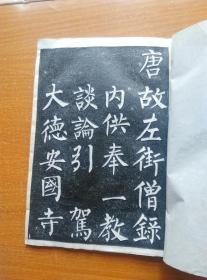 唐故左街僧錄
內供奉三教
談論引駕
大德安國寺